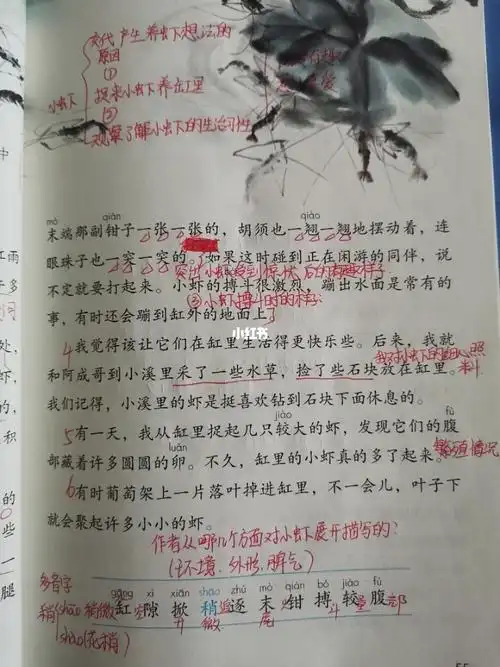 交代产生养虫下想法的
原因
①
捉来小虫下养缸里
小虫下
②
观察了解小虫下的生活习性
mò qián qiào
末端那副钳子一张一张的，胡须也一翘一翘地摆动着，连
眼珠子也一突一突的。如果这时碰到正在闲游的同伴，说
突出小虾受到惊吓后的有趣样子
不定就要打起来。小虾的搏斗很激烈，蹦出水面是常有的
②小虾搏斗时的样子
事，有时还会蹦到缸外的地面上
小红书
4我觉得该让它们在缸里生活得更快乐些。后来，我就
我对小虫下的细心照料
和阿成哥到小溪里采了一些水草，捡了些石块放在缸里。
我们记得，小溪里的虾是挺喜欢钻到石块下面休息的。
jiào fù
5有一天，我从缸里捉起几只较大的虾，发现它们的腹
luǎn
部藏着许多圆圆的卵。不久，缸里的小虾真的多了起来。
繁殖情况
6有时葡萄架上一片落叶掉进缸里，不一会儿，叶子下
就会聚起许多小小的虾。
作者从哪几个方面对小虫下展开描写的？
(环境、外形、脾气)
多音字
gāng xì xiān shāo zhú mò qián bó jiào fù
稍(shāo 稍微 缸 空隙 掀 稍 追逐 末 钳 搏 较量 腹部
开 微 尾 斗
shào(花稍)
55